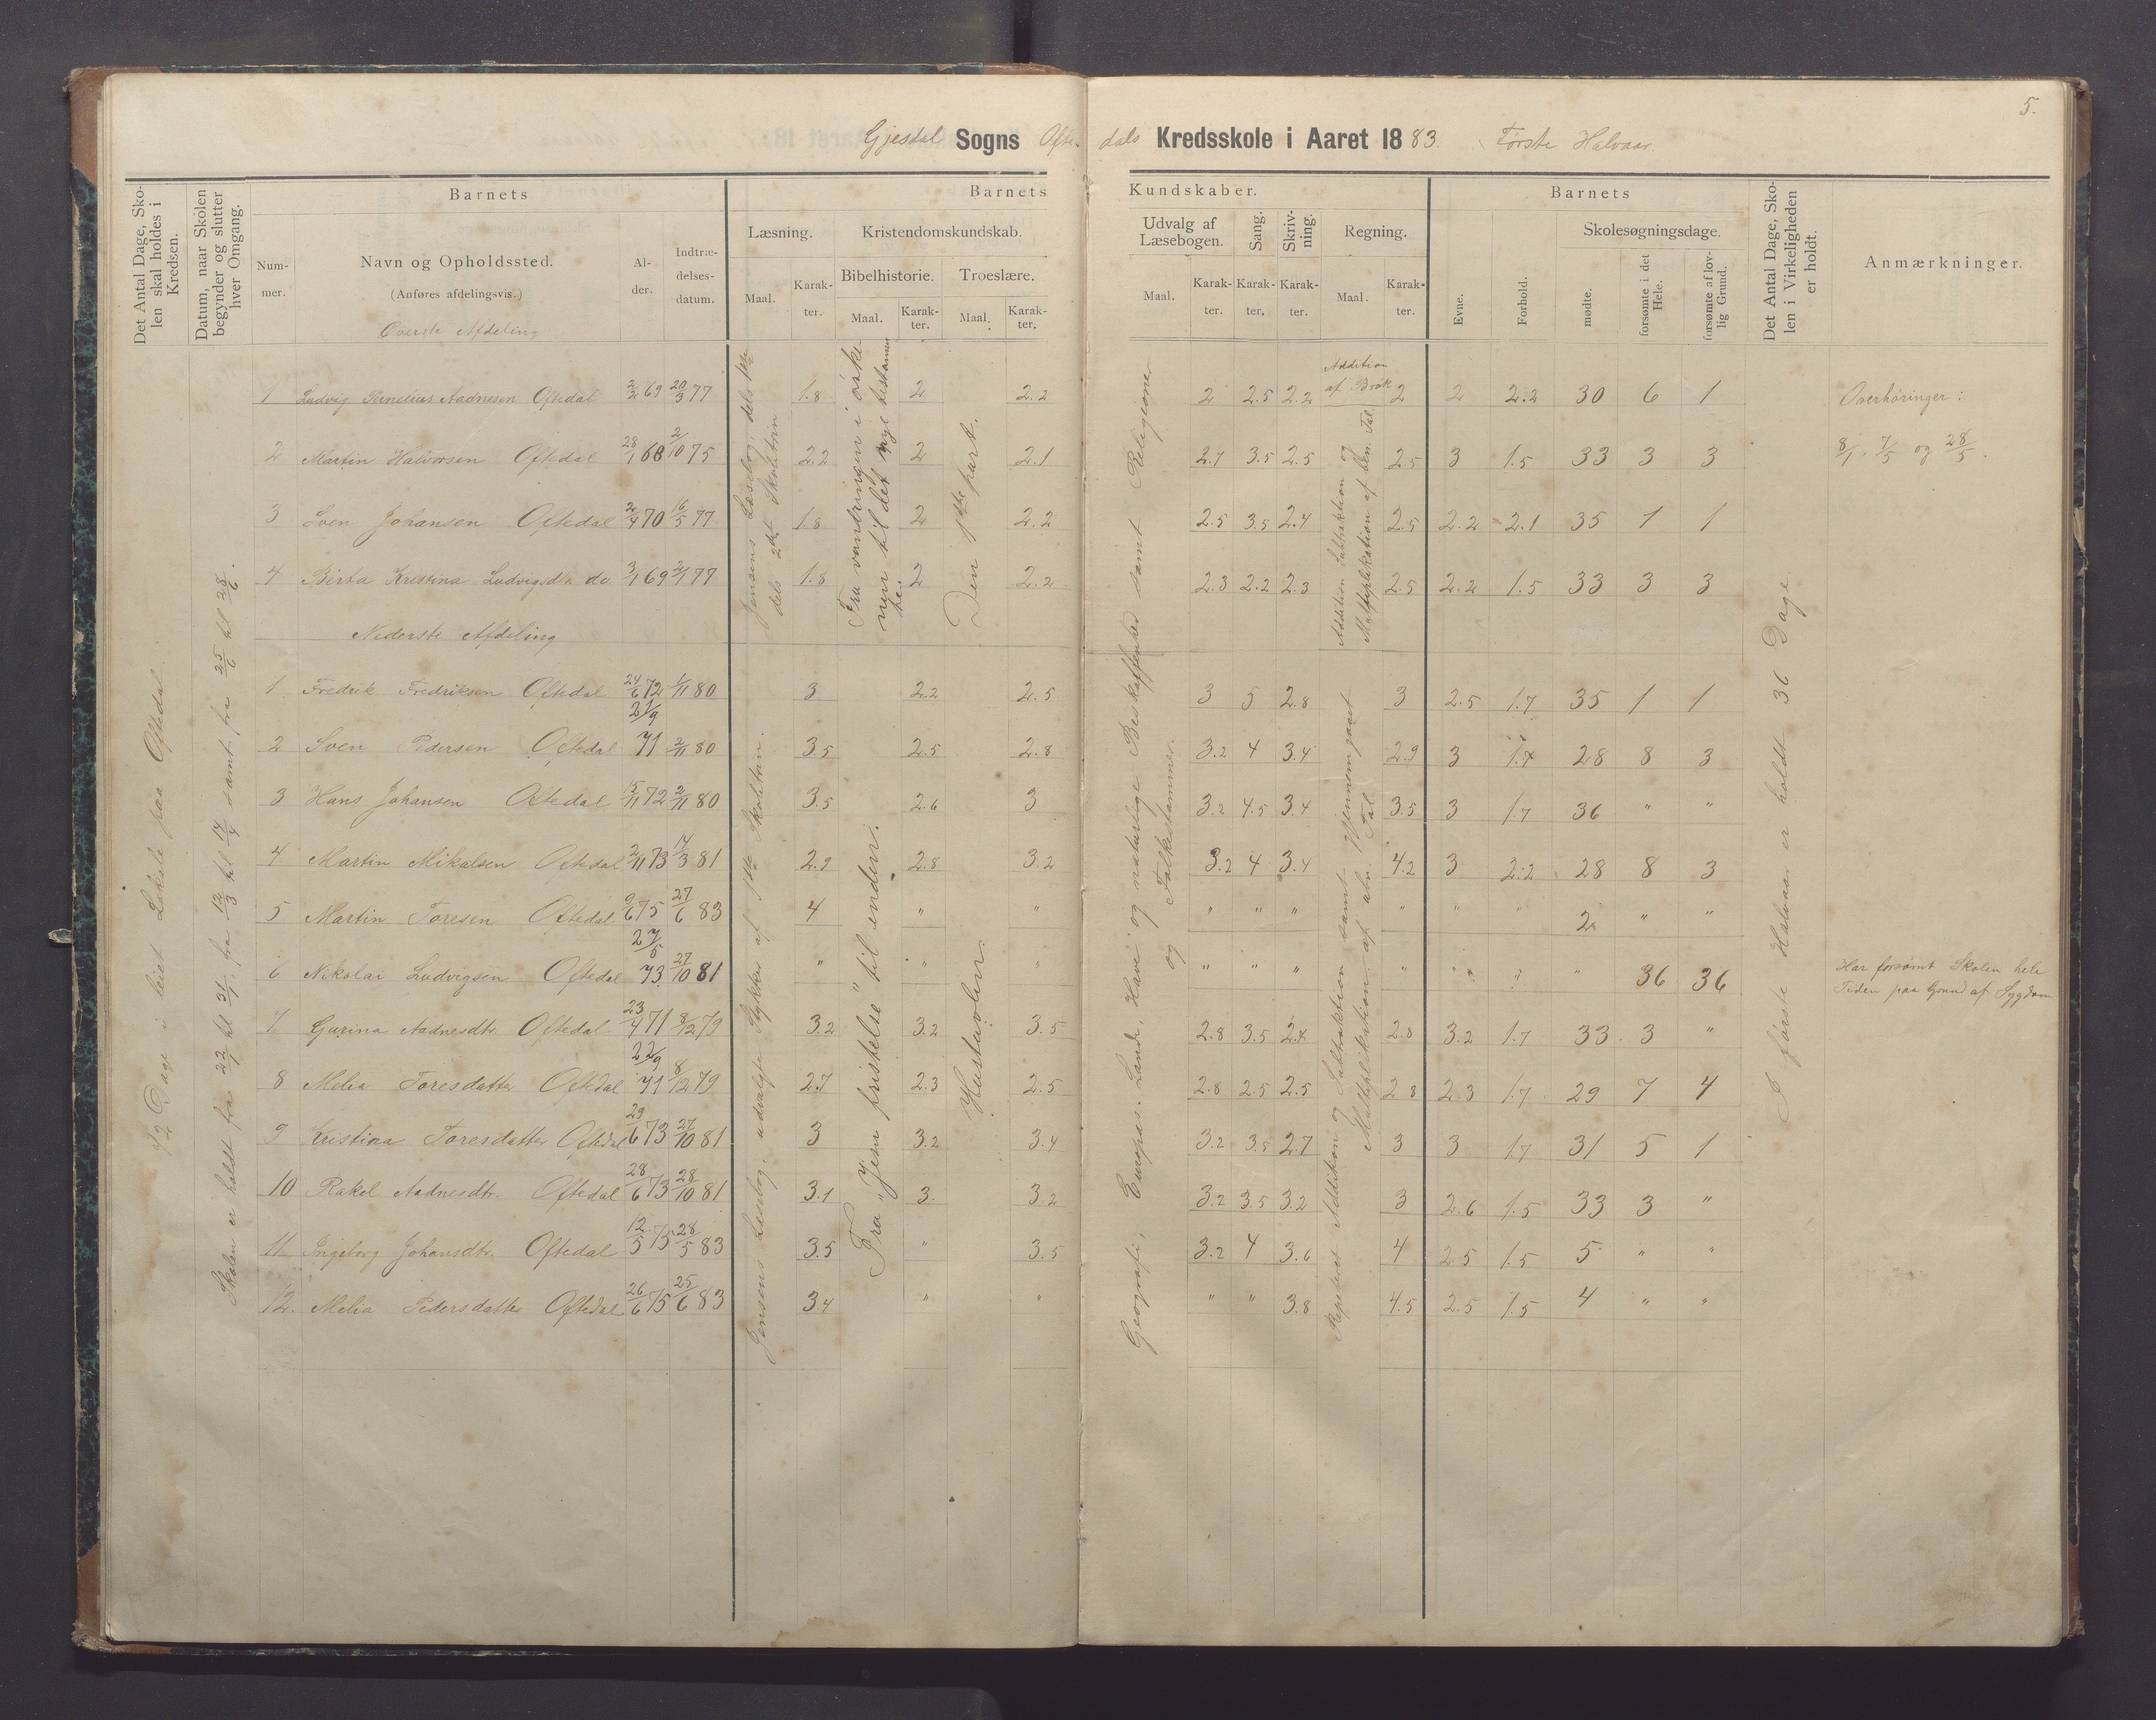 5.
Gjesdal Sogns Ofte- dals Kredsskole i Aaret 1883. Første Halvaar.
Det Antal Dage, Skolen skal holdes i Kredsen.
Datum, naar Skolen begynder og slutter hver Omgang.
Barnets
Nummer.
Navn og Opholdssted.
(Anføres afdelingsvis.)
Alder.
Indtrædelsesdatum.
Barnets Kundskaber.
Læsning.
Maal. Karakter.
Kristendomskundskab.
Bibelhistorie.
Maal. Karakter.
Troeslære.
Maal. Karakter.
Udvalg af Læsebogen.
Maal. Karakter.
Sang.
Karakter.
Skrivning.
Karakter.
Regning.
Maal. Karakter.
Barnets
Evne.
Forhold.
Skolesøgningsdage.
mødte.
forsømte i det Hele.
forsømte af lovlig Grund.
Det Antal Dage, Skolen i Virkeligheden er holdt.
Anmærkninger.
72 Dage i leiet Lokale paa Oftedal.
Skolen er holdt fra 22/1 til 31/1, fra 12/3 til 17/4 samt fra 25/6 til 28/6.
Øverste Afdeling
1 Ludvig Aadnesen Oftedal 2/2 69 20/3 77 1.8 2 2.2 2 2.5 2.2 2 2 2.2 30 6 1
2 Martin Halvorsen Oftedal 28/1 68 2/10 75 2.2 2 2.1 2.7 3.5 2.5 2.5 3 1.5 33 3 3
3 Sven Johansen Oftedal 2/4 70 16/5 77 1.8 2 2.2 2.5 3.5 2.4 2.5 2.2 2.1 35 1 1
4 Birta Kristina Ludvigsdtr. do. 3/1 69 2/1 77 1.8 2 2.2 2.3 2.2 2.3 2.5 2.2 1.5 33 3 3
Jensens Læsebog, dels 1ste
dels 2det Skoletrin
Fra vandringen i ørkenen til det nye testamente.
Den 1ste part.
Addition af Brøk
Addition, Subtraktion og
Multiplikation af ben. Tal.
Nederste Afdeling
1 Fredrik Fredriksen Oftedal 24/6 72 1/11 80 3 2.2 2.5 3 5 2.8 3 2.5 1.7 35 1 1
2 Sven Pedersen Oftedal 21/9 71 2/11 80 3.5 2.5 2.8 3.2 4 3.4 2.9 3 1.7 28 8 3
3 Hans Johansen Oftedal 15/11 72 2/11 80 3.5 2.6 3 3.2 4.5 3.4 3.5 3 1.7 36 " "
4 Martin Mikalsen Oftedal 2/11 73 14/3 81 2.9 2.8 3.2 3.2 4 3.4 4.2 3 2.2 28 8 3
5 Martin Toresen Oftedal 9/6 75 27/6 83 4 " " " " " " " " 2 " "
6 Nikolai Ludvigsen Oftedal 27/5 73 27/10 81 " " " " " " " " " " 36 36
7 Gurina Aadnesdtr. Oftedal 23/4 71 8/12 79 3.2 3.2 3.5 2.8 3.5 2.8 2.8 3.2 1.7 33 3 "
8 Melia Toresdatter Oftedal 22/9 71 8/12 79 2.7 2.3 2.5 2.8 2.5 2.5 2.8 2.3 1.7 29 7 4
9 Kristina Toresdatter Oftedal 29/6 73 27/10 81 3 3.2 3.4 3.2 3.5 2.7 3 3 1.7 31 5 1
10 Rakel Aadnesdtr. Oftedal 28/6 73 28/10 81 3.1 3. 3.2 3.2 3.5 3.2 3 2.6 1.5 33 3 "
11 Ingeborg Johansdtr. Oftedal 12/5 75 28/5 83 3.5 " 3.5 3.2 4 3.6 4 2.5 1.5 5 " "
12. Melia Pedersdatter Oftedal 26/6 75 25/6 83 3.4 " " " " 3.8 4.5 2.5 1.5 4 " "
Jensens Læsebog. udvalgte Stykker af 1ste Skoletrin.
Fra "Jesu fristelse" til enden.
Hustavlen
Geografi, Europas: Lande, Have og naturlige Beskaffenhed samt Religioner
og Folkestammer.
Repeteret Addition og Subtraktion samt gjennemgaaet
Multiplikation af ube. Tal
I første Halvaar er holdt 36 Dage.
Overhøringer:
8/1, 7/5 og 28/5.
Har forsømt Skolen hele
Tiden paa Grund af Sygdom